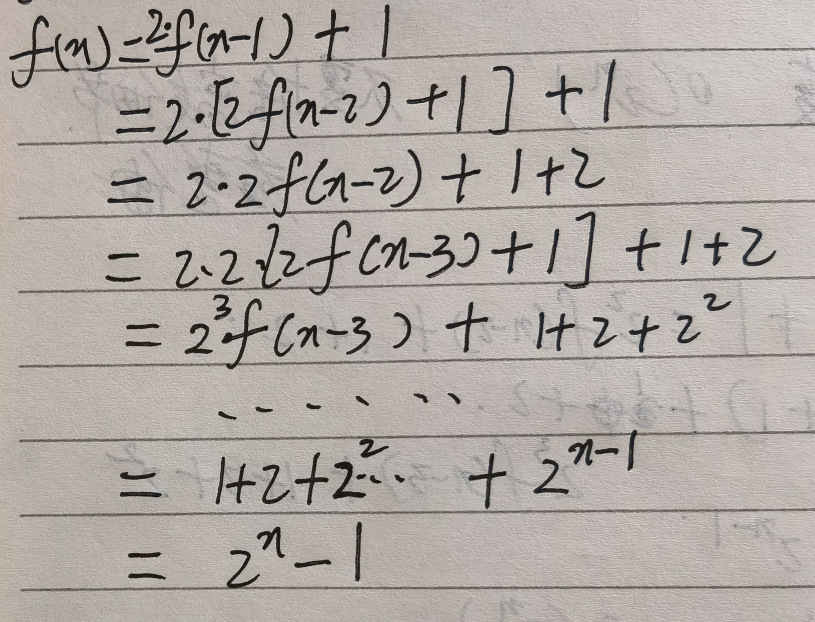 f(n)=2·f(n-1)+1
=2·[2f(n-2)+1]+1
=2·2f(n-2)+1+2
=2·2·[2f(n-3)+1]+1+2
=2³·f(n-3)+1+2+2²
......
=1+2+2²...+2ⁿ⁻¹
=2ⁿ-1